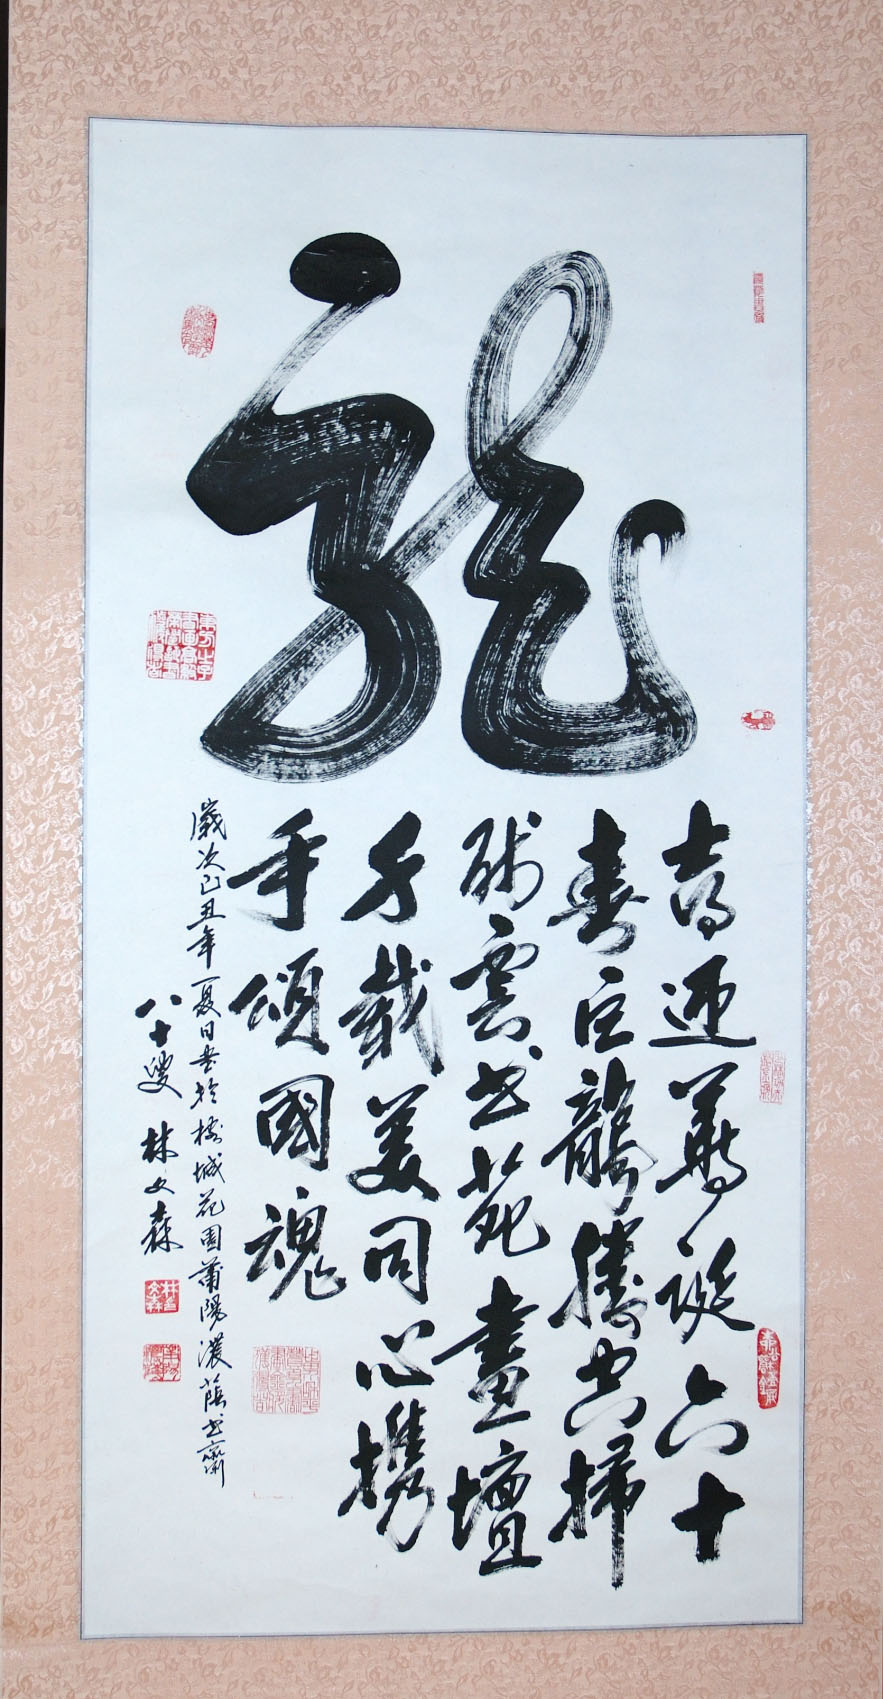 龍
喜迎華誕六十
春巨龍騰空掃
殘雲書苑畫壇
千載美同心携
手頌國魂
歲次己丑年夏日書於榕城花園莆陽濃蔭書齋
八十叟 林文森